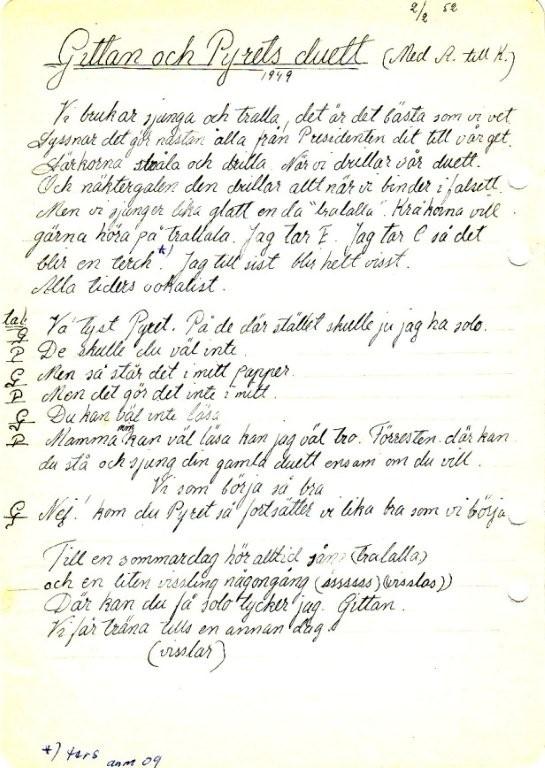 2/2 52
Gittan och Pyrets duett (Med A. till K.)
1949
Vi brukar sjunga och tralla, det är det bästa som vi vet
Lyssnar det gör nästan alla från Presidenten dit till vår get.
Lärkorna stråla och drilla. När vi drillar vår duett.
Och näktergalen den drillar allt när vi binder i falsett.
Men vi sjunger lika glatt en da "tralalla". Kråkorna vill
gärna höra på trallala. Jag tar E. Jag tar C så det
blir en terck *). Jag till sist blir helt visst.
Alla tiders vokalist.
tal.
Va tyst Pyret. På de där stället skulle ju jag ha solo.
De skulle du väl inte.
Men så står det i mitt papper.
Men det gör det inte i mitt.
Du kan väl inte läsa
Mamma kan väl läsa kan jag väl tro. Förresten där kan
du stå och sjung din gamla duett ensam om du vill.
Vi som börja så bra
G Nej! kom du Pyret så fortsätter vi lika bra som vi börja
Till en sommardag hör alltid sång (tralalla)
och en liten vissling någongång (ssssss)
Där kan du få solo tycker jag. Gittan.
Vi får träna tills en annan dag.
(visslar)
*) ters anm 09